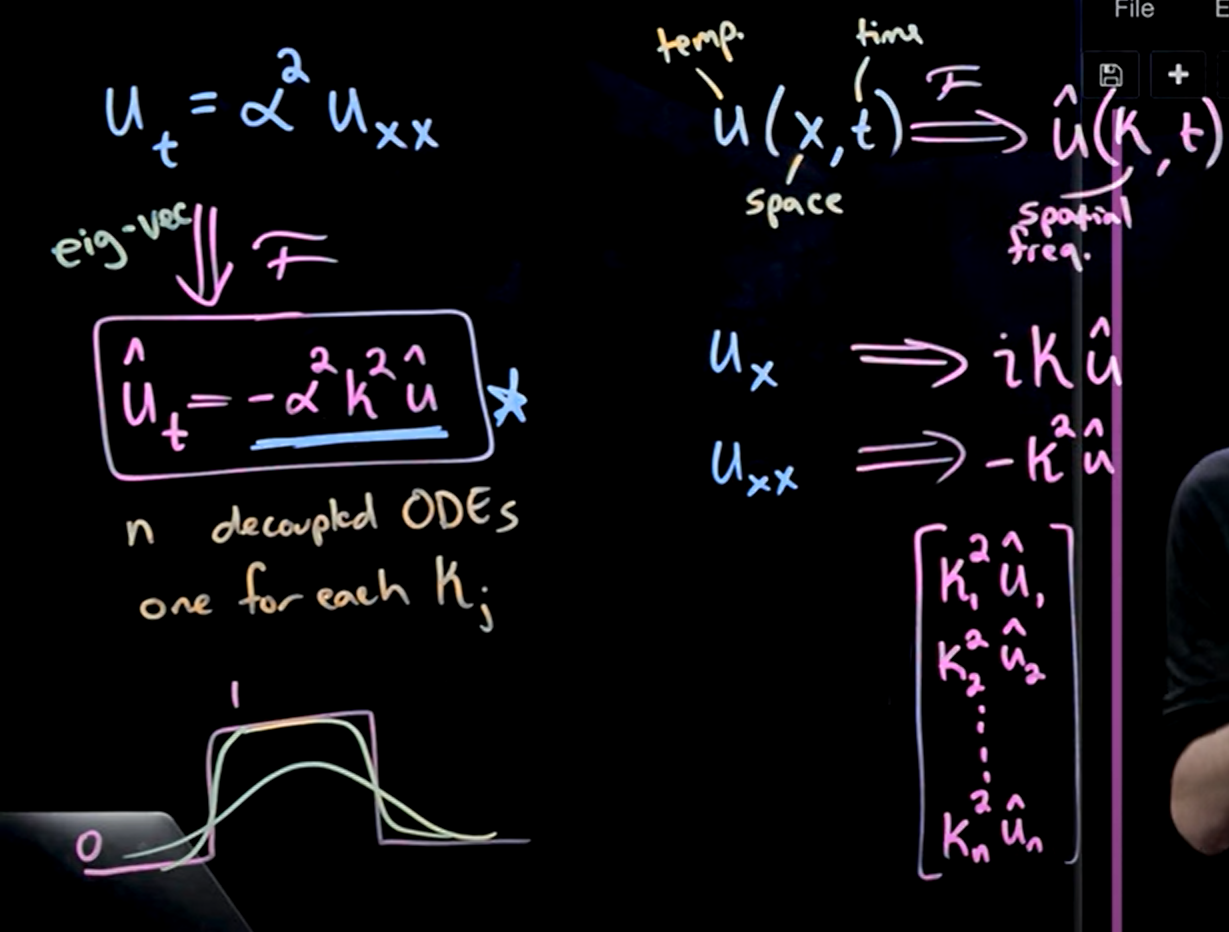 u_t = α² u_xx
eig-vec F
û_t = -α² k² û *
n decoupled ODEs
one for each K_j
1
0
temp. time
u(x,t) ⟹ F û(k,t)
space
spatial
freq.
u_x ⟹ i k û
u_xx ⟹ -k² û
k₁² û₁
k₂² û₂
⋮
k_n² û_n
File E